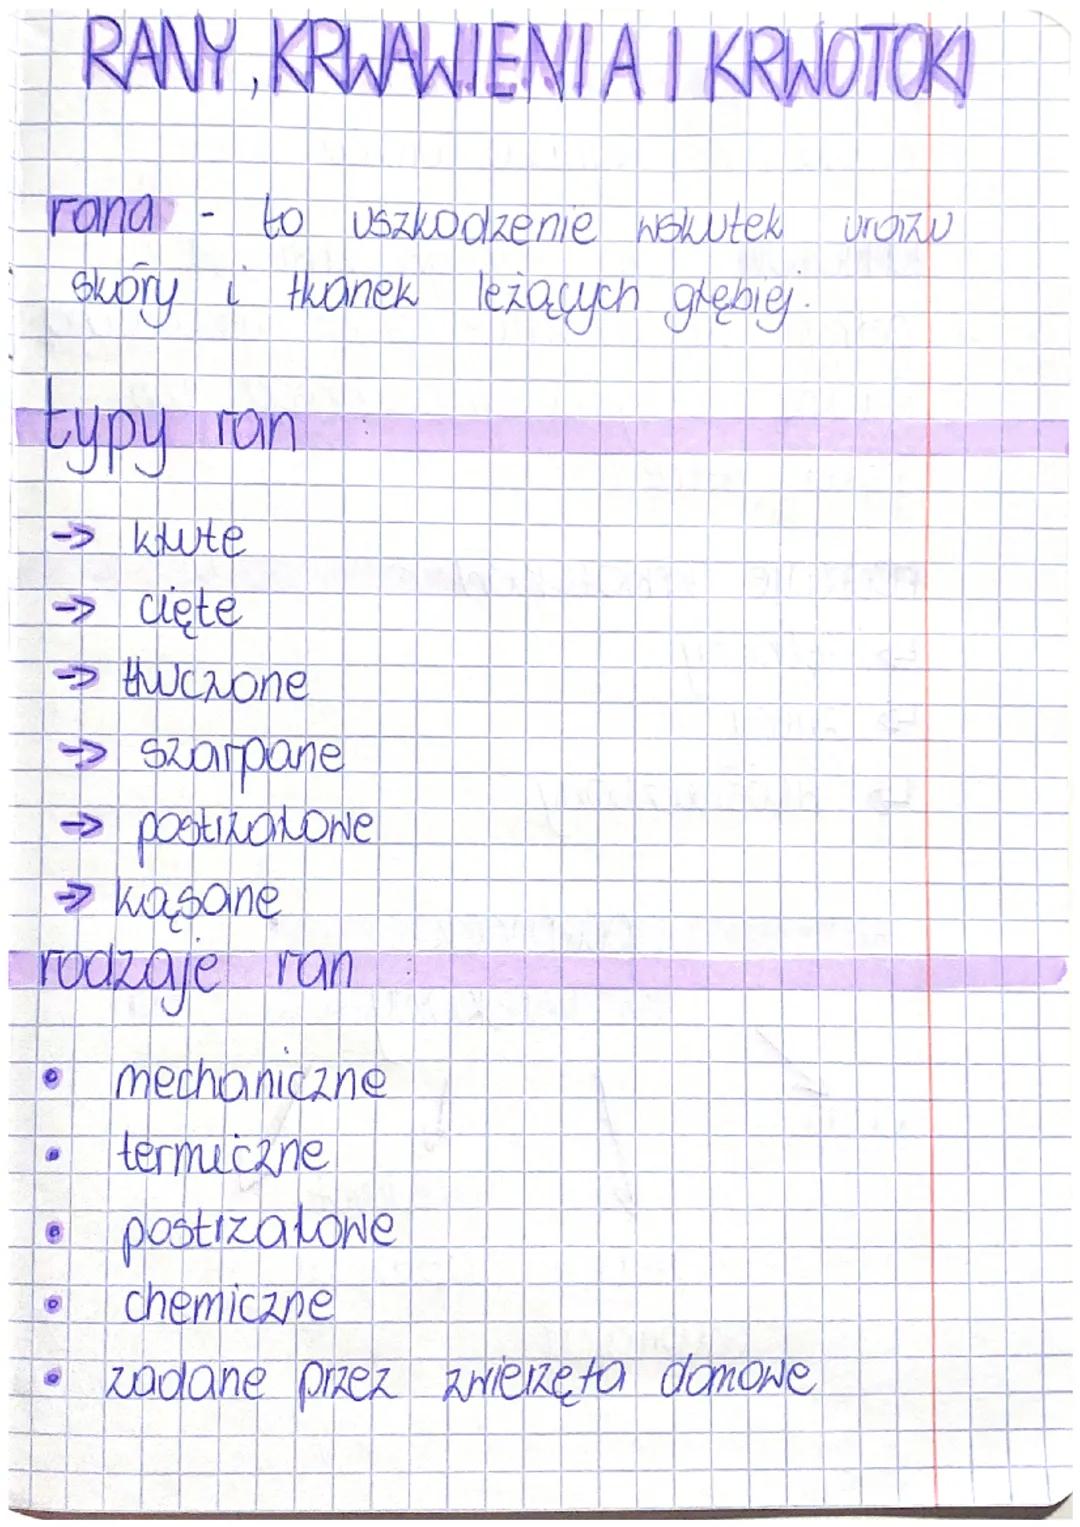 RANY, KRWAWIENIA I KRWOTOKI
rana - to uszkodzenie wskutek urazu
skóry i tkanek leżących głębiej.
typy ran :
-> kłute
-> cięte
-> tłuczone
-> szarpane
-> postrzałowe
-> kąsane
rodzaje ran :
• mechaniczne
• termiczne
• postrzałowe
• chemiczne
• zadane przez zwierzęta domowe